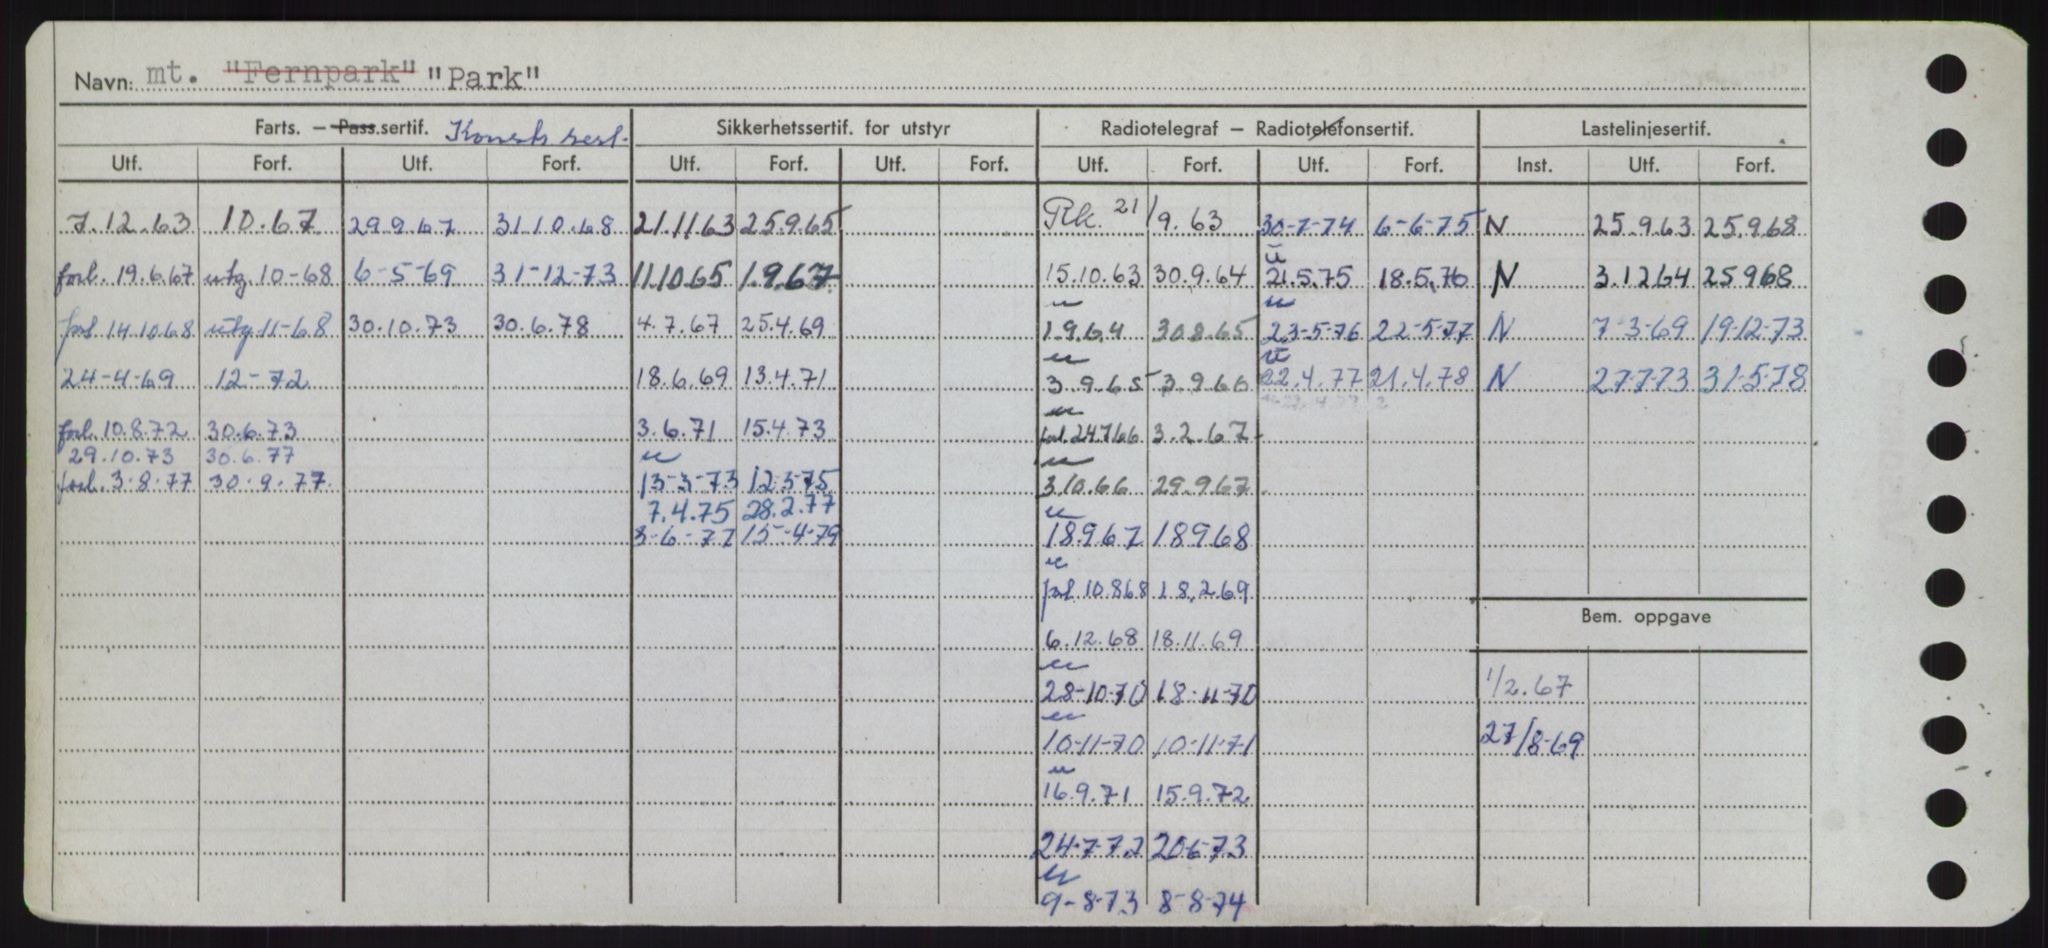 Navn: mt. "Fernpark" "Park"
Farts. – Pass.sertif. Sikkerhetssertif. for utstyr Radiotelegraf – Radiotelefonsertif. Lastelinjesertif.
Utf. Forf. Utf. Forf. Utf. Forf. Utf. Forf. Utf. Forf. Utf. Forf. Inst. Utf. Forf.
7.12.63 10.67 29.9.67 31.10.68 21.11.63 25.9.65 Rk. 21/9.63 30-7-74 6-6-75 N 25.9.63 25.9.68
forl. 19.6.67 utg. 10-68 6-5-69 31-12-73 11.10.65 1.9.67 15.10.63 30.9.64 21.5.75 18.5.76 N 3.12.64 25.9.68
forl. 14.10.68 utg. 11-68 30.10.73 30.6.78 4.7.67 25.4.69 1.9.64 30.8.65 23-5-76 22-5-77 N 7-3-69 19-12-73
24-4-69 12-72 18.6.69 13.4.71 3.9.65 3.9.66 22.4.77 21.4.78 N 27-7-73 31-5-78
forl. 10.8.72 30.6.73 3.6.71 15.4.73 forl. 24.7.66 3.2.67
29.10.73 30.6.77
forl. 3-8-77 30-9-77 13-3-73 12.3.75 3.10.66 29.9.67
7.4.75 28.2.77
3-6-77 15-4-79 18.9.67 18.9.68
forl. 10.8.68 18.2.69
Bem. oppgave
6.12.68 18.11.69
28-10-70 18-11-70 1/2.67
10-11-70 10-11-71 27/8-69
16.9.71 15.9.72
24-7-72 20.6.73
9-8-73 8-8-74